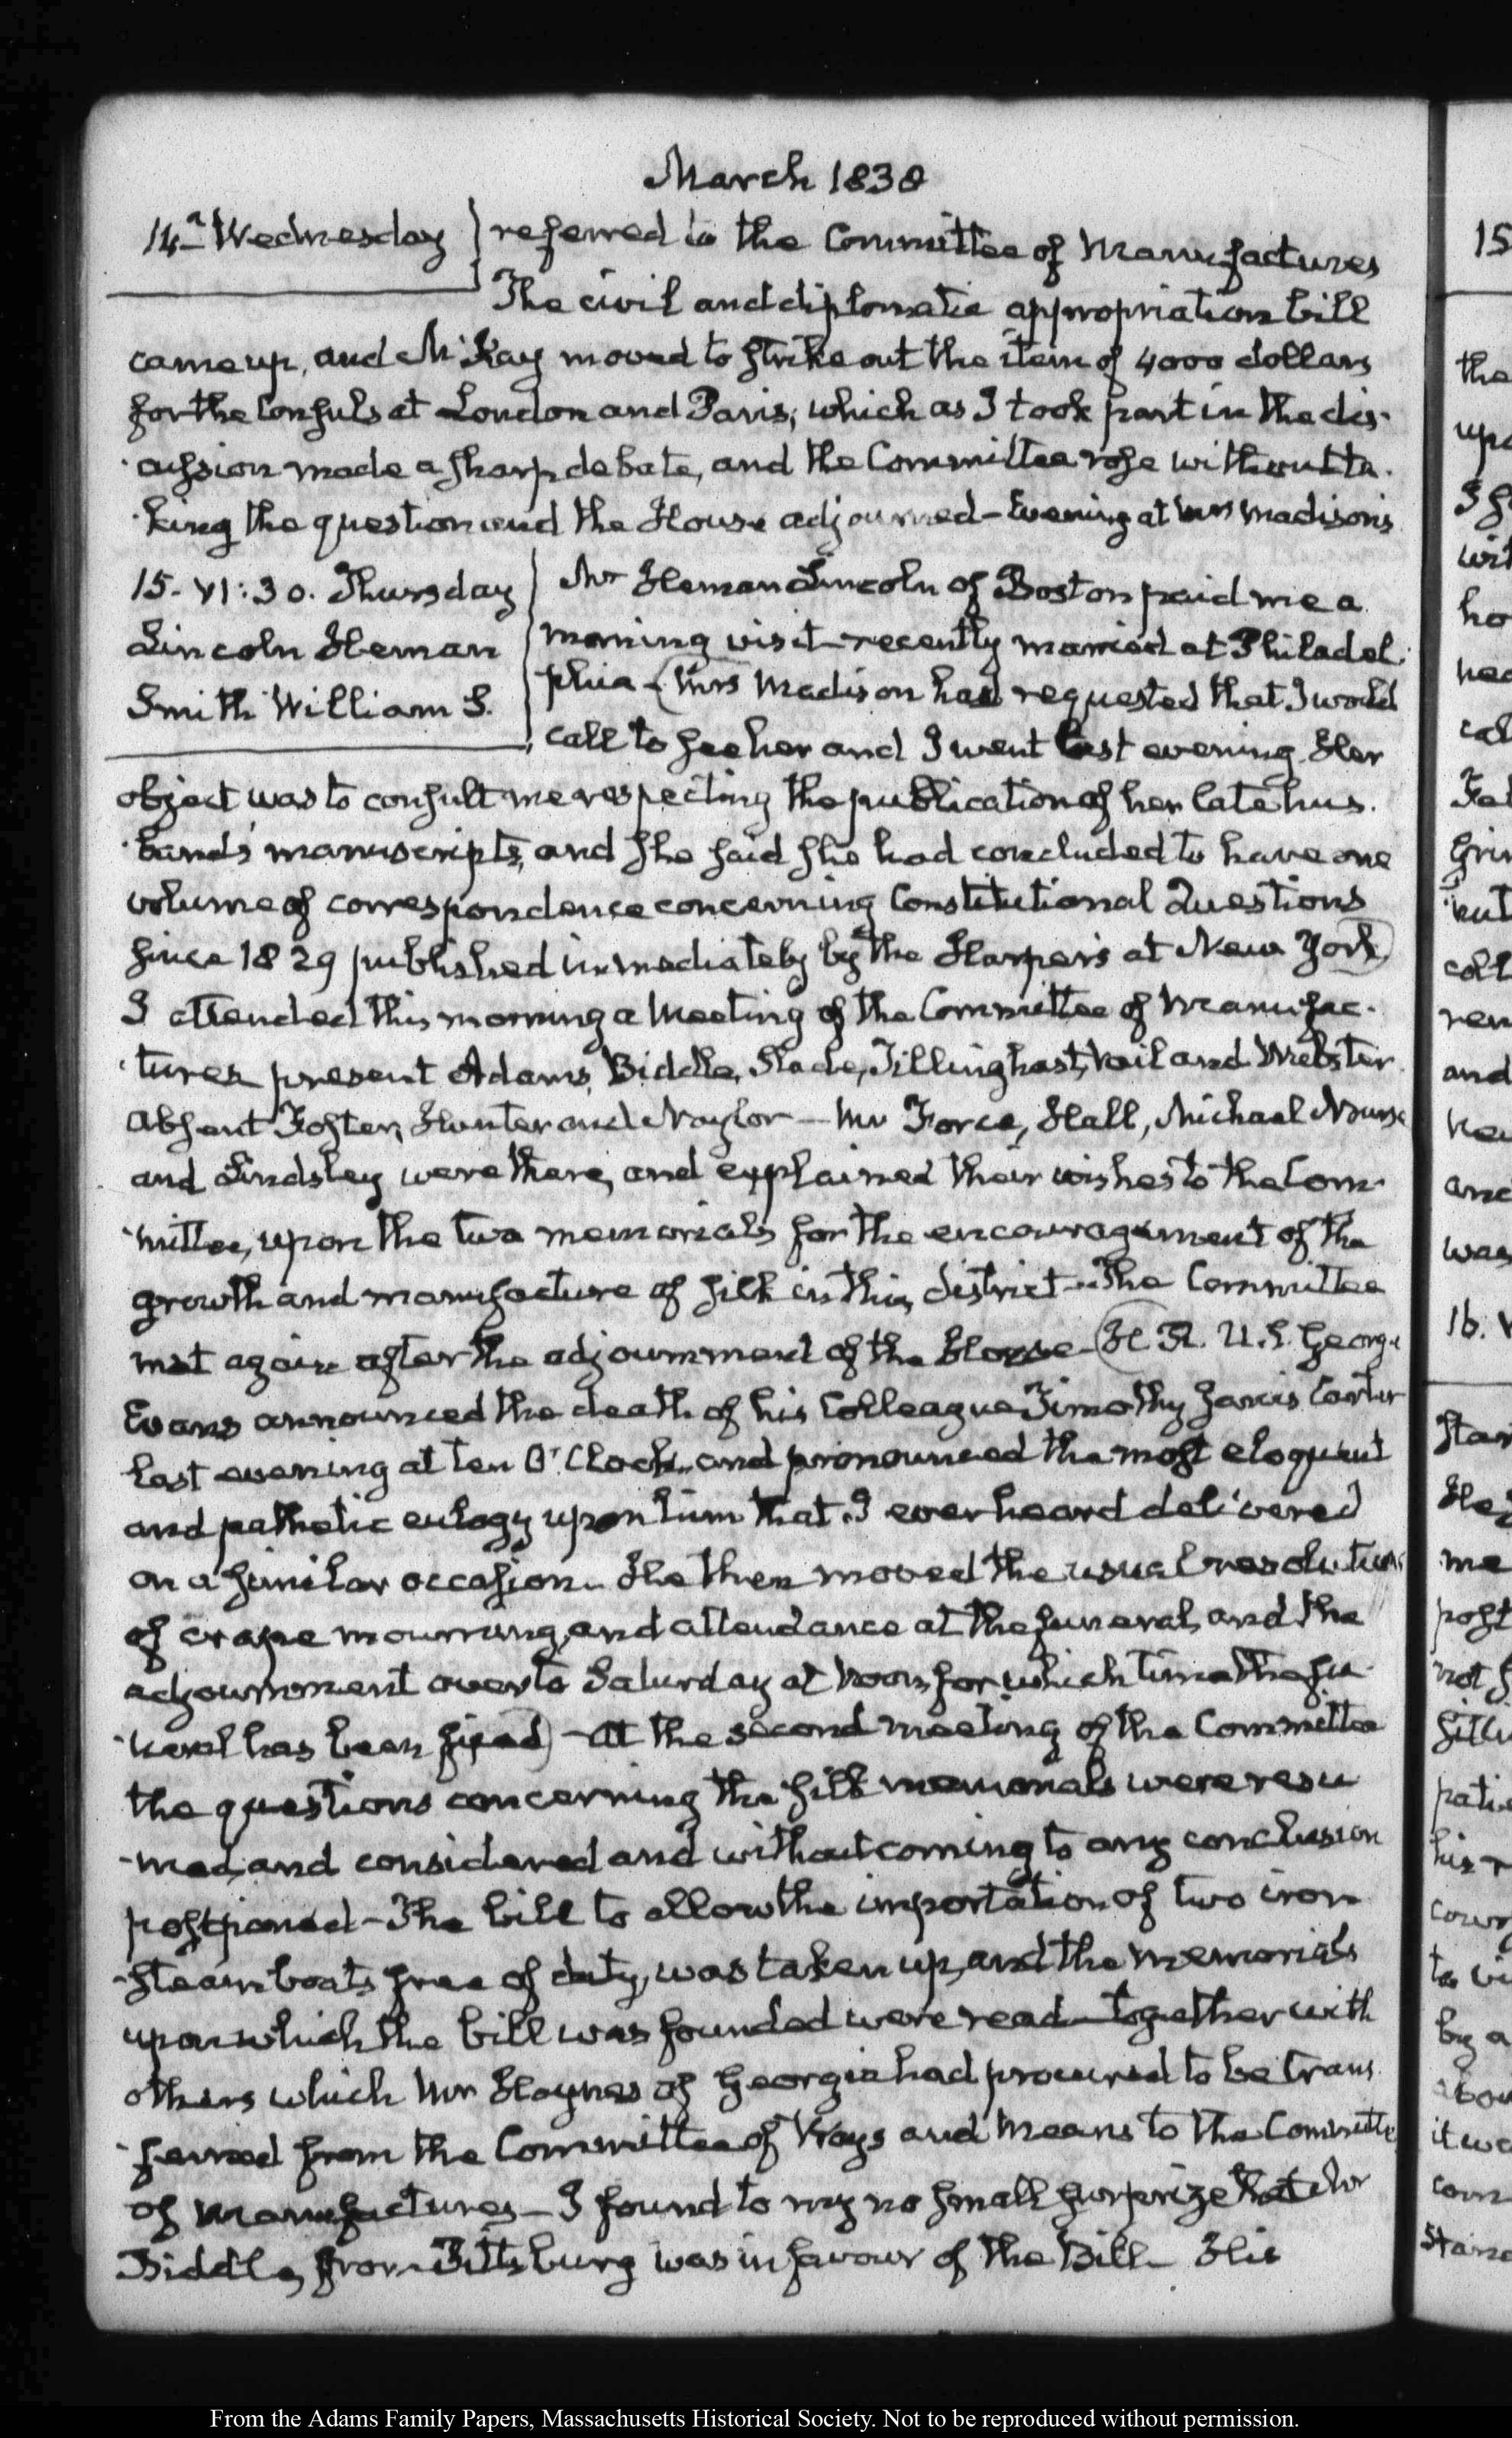 March 1838
14. Wednesday
referred to the Committee of Manufactures
The civil and diplomatic appropriation bill
came up, and McKay moved to strike out the item of 4000 dollars
for the Consuls at London and Paris; which as I took part in the dis-
-cussion made a sharp debate, and the Committee rose without ta-
-king the question and the House adjourned - Evening at Mrs Madison's
15. VI:30. Thursday
Lincoln Heman
Smith William S.
Mr Heman Lincoln of Boston paid me a
morning visit - recently married at Philadel-
phia - (Mrs Madison had requested that I would
call to see her and I went last evening. Her
object was to consult me respecting the publication of her late hus-
-band's manuscripts, and she said she had concluded to have one
volume of correspondence concerning Constitutional Questions
since 1829 published immediately by the Harpers at New York)
I attended this morning a Meeting of the Committee of Manufac-
-tures present Adams, Biddle, Slade, Tillinghast, Vail and Webster
absent Foster, Hunter and Naylor - Mr Force, Hall, Michael Nourse
and Lindsley were there, and explained their wishes to the Com-
-mittee, upon the two memorials for the encouragement of the
growth and manufacture of silk in this district - The Committee
met again after the adjournment of the House - (H.R. U.S. George
Evans announced the death of his Colleague Timothy Jarvis Carter
last evening at ten O'Clock, and pronounced the most eloquent
and pathetic eulogy upon him that I ever heard delivered
on a similar occasion. He then moved the usual resolutions
of crape mourning, and attendance at the funeral, and the
adjournment over to Saturday at Noon, for which time the fu-
-neral has been fixed) - At the second meeting of the Committee
the questions concerning the silk memorials were resu
-med, and considered and without coming to any conclusion
postponed - The bill to allow the importation of two iron
-steam boats free of duty, was taken up, and the memorials
upon which the bill was founded were read - together with
others which Mr Haynes of Georgia had procured to be trans-
-ferred from the Committee of Ways and Means to the Committee
of Manufactures - I found to my no small surprize that Mr
Biddle, from Pittsburg was in favour of the Bill - His
15
the
upo
wit
ho
hea
cal
and
anc
was
16. V
me
post
not
by a
it wa
com
From the Adams Family Papers, Massachusetts Historical Society. Not to be reproduced without permission.